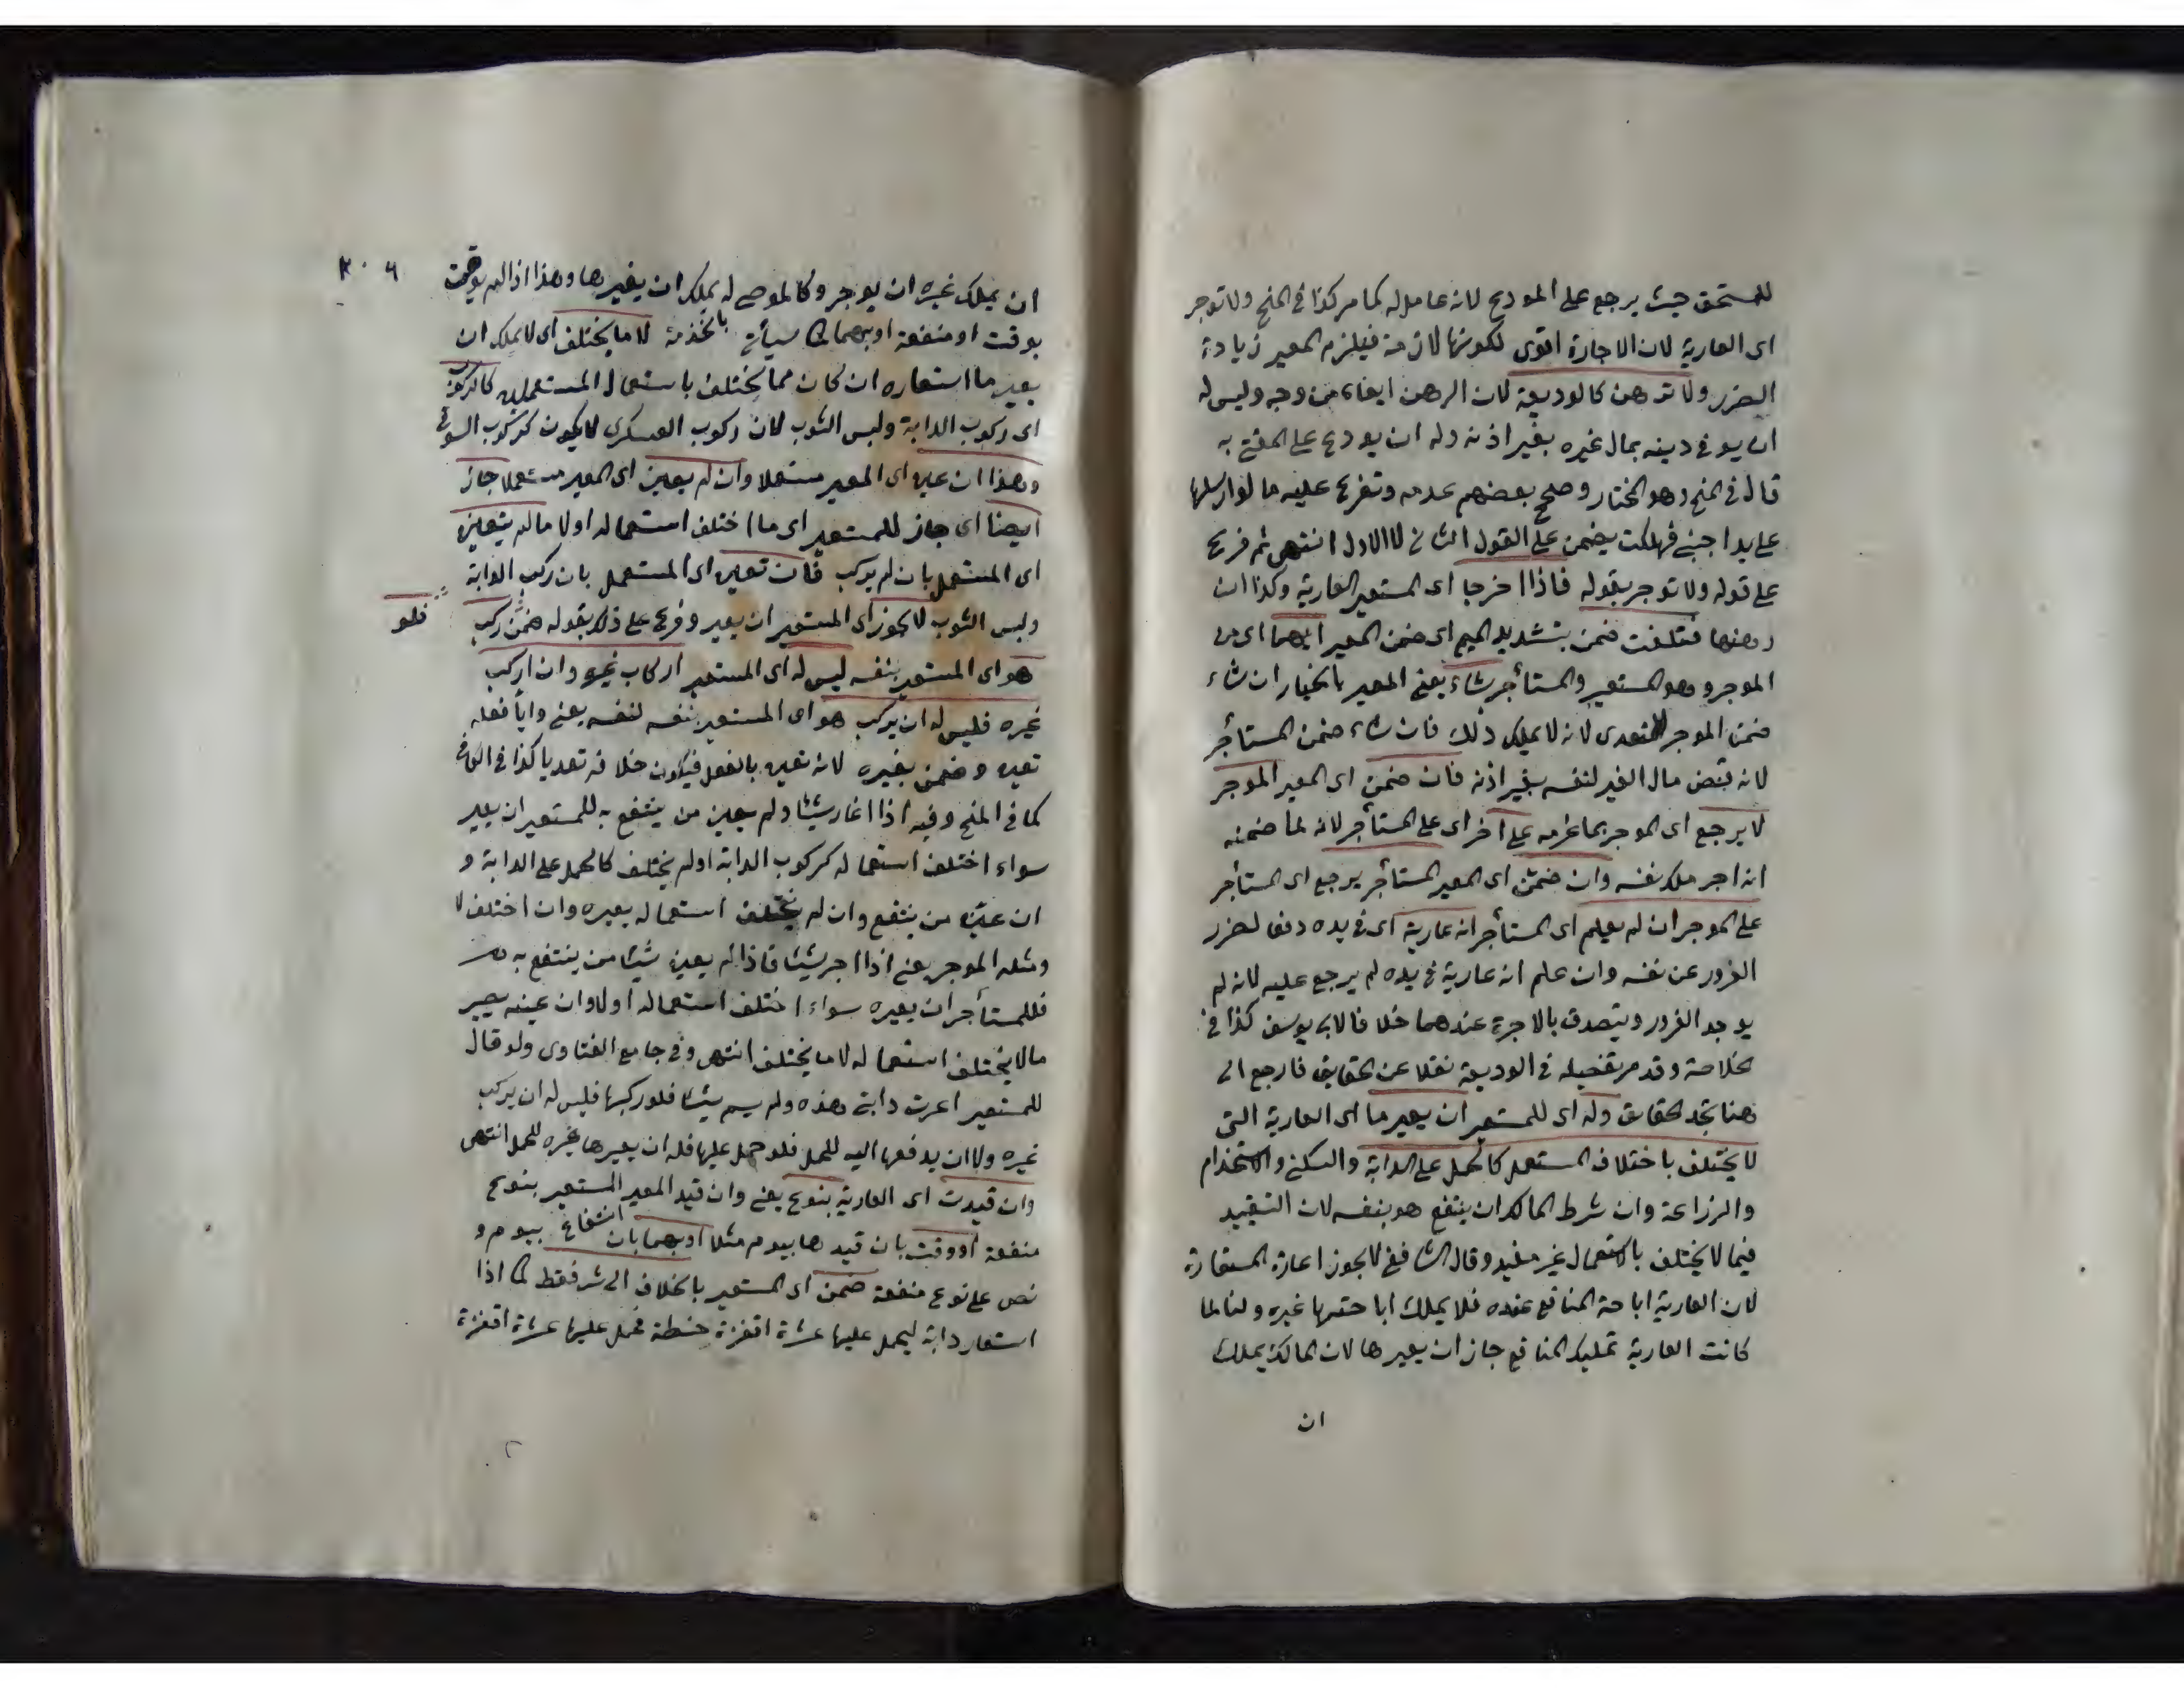 للمستحق حيث يرجع على المودع لانه عامل له كما مر كذا في المنح ولا توجر
اى العارية لان الاجارة اقوى لكونها لازمة فيلزم المعير زيادة
الضرر ولا ترهن كالوديعة لان الرهن ايفاء من وجه وليس له
ان يوفى دينه بمال غيره بغير اذنه وله ان يودع على المفتى به
قال فى المنح وهو المختار وصحح بعضهم عدمه وتفرع عليه ما لو ارسلها
على يد اجنبى فهلكت يضمن على القول الثانى لا الاول انتهى ثم فرع
على قوله ولا توجر بقوله فاذا اخرجا اى المستعير العارية وكذا ان
رهنها فتلفت ضمن بتشديد الميم اى ضمن المعير ايهما اى من
الموجر وهو المستعير والمستأجر شاء يعنى المعير بالخيار ان شاء
ضمن الموجر للتعدى لانه لا يملك ذلك فان شاء ضمن المستأجر
لانه قبض مال الغير لنفسه بغير اذنه فان ضمن اى المعير الموجر
لا يرجع اى الموجر بما غرمه على اخر اى على المستأجر لانه لما ضمنه
انه اجر ملك نفسه وان ضمن اى المعير المستأجر يرجع اى المستأجر
على الموجر ان لم يعلم اى المستأجر انه عارية اى فى يده دفعا لضرر
الغرور عن نفسه وان علم انه عارية فى يده لم يرجع عليه لانه لم
يوجد الغرور ويتصدق بالاجرة عندهما خلافا لابى يوسف كذا فى
الخلاصة وقد مر تفصيله فى الوديعة نقلا عن الحقايق فارجع الى
هنا تجد الحقايق وله اى للمستعير ان يعير ما اى العارية التى
لا يختلف باختلاف المستعمل كالحمل على الدابة والسكنى والاستخدام
والزراعة وان شرط المالك ان ينتفع هو بنفسه لان التقييد
فيما لا يختلف بالاستعمال غير مفيد وقال الشافعى لا يجوز اعارة المستعارة
لان العارية اباحة المنافع عنده فلا يملك اباحتها غيره ولنا لما
كانت العارية تمليك المنافع جاز ان يعيرها لان المالك يملك
ان
٣٠٦
ان يملك غيره ان يوجر وكالموصى له يملك ان يعيرها وهذا اذا لم يوقت
بوقت او منفعة او بهما لما سيأتى بالخدمة لا ما يختلف اى لا يملك ان
يعير ما استعاره ان كان مما يختلف باستعمال المستعملين كالركوب
اى ركوب الدابة ولبس الثوب لان ركوب العسكرى لا يكون كركوب السوقى
وهذا ان عين اى المعير مستعملا وان لم يعين اى المعير مستعملا جاز
ايضا اى جاز للمستعير اى ما اختلف استعماله اولا ما لم يتعين
اى المستعمل بان لم يركب فان تعين اى المستعمل بان ركب الدابة
ولبس الثوب لا يجوز اى المستعير ان يعير وفرع على ذلك بقوله ضمن ركب
فلو
هو اى المستعير بنفسه ليس له اى المستعير اركاب غيره وان اركب
غيره فليس له ان يركب هو اى المستعير بنفسه لنفسه يعنى وايا فعله
تعين وضمن بغيره لانه تعين بالفعل فيكون خلافه تعديا كذا فى الكافى
كما فى المنح وفيه اذا اعار شيئا ولم يعين من ينتفع به للمستعير ان يعير
سواء اختلف استعماله كركوب الدابة اولم يختلف كالحمل على الدابة و
ان عين من ينتفع وان لم يختلف استعماله يعيره وان اختلف لا
ومثله الموجر يعنى اذا اجر شيئا فاذا لم يعين شيئا من ينتفع به
فللمستأجر ان يعيره سواء اختلف استعماله اولا وان عينه يعير
مالا يختلف استعماله لا ما يختلف انتهى وفى جامع الفتاوى ولو قال
للمستعير اعرت دابتى هذه ولم يسم شيئا فلو ركبها فليس له ان يركب
غيره ولا ان يدفعها اليه للحمل فلو حمل عليها فله ان يعيرها غيره للحمل انتهى
وان قيدت اى العارية بنوع يعنى وان قيد المعير المستعير بنوع
منفعة او وقت بان قيدها بيوم مثلا او بهما بان انتفاع بيوم و
نص على نوع منفعة ضمن اى المستعير بالخلاف الى شر فقط كما اذا
استعار دابة ليحمل عليها عشرة اقفزة حنطة فحمل عليها عشرة اقفزة